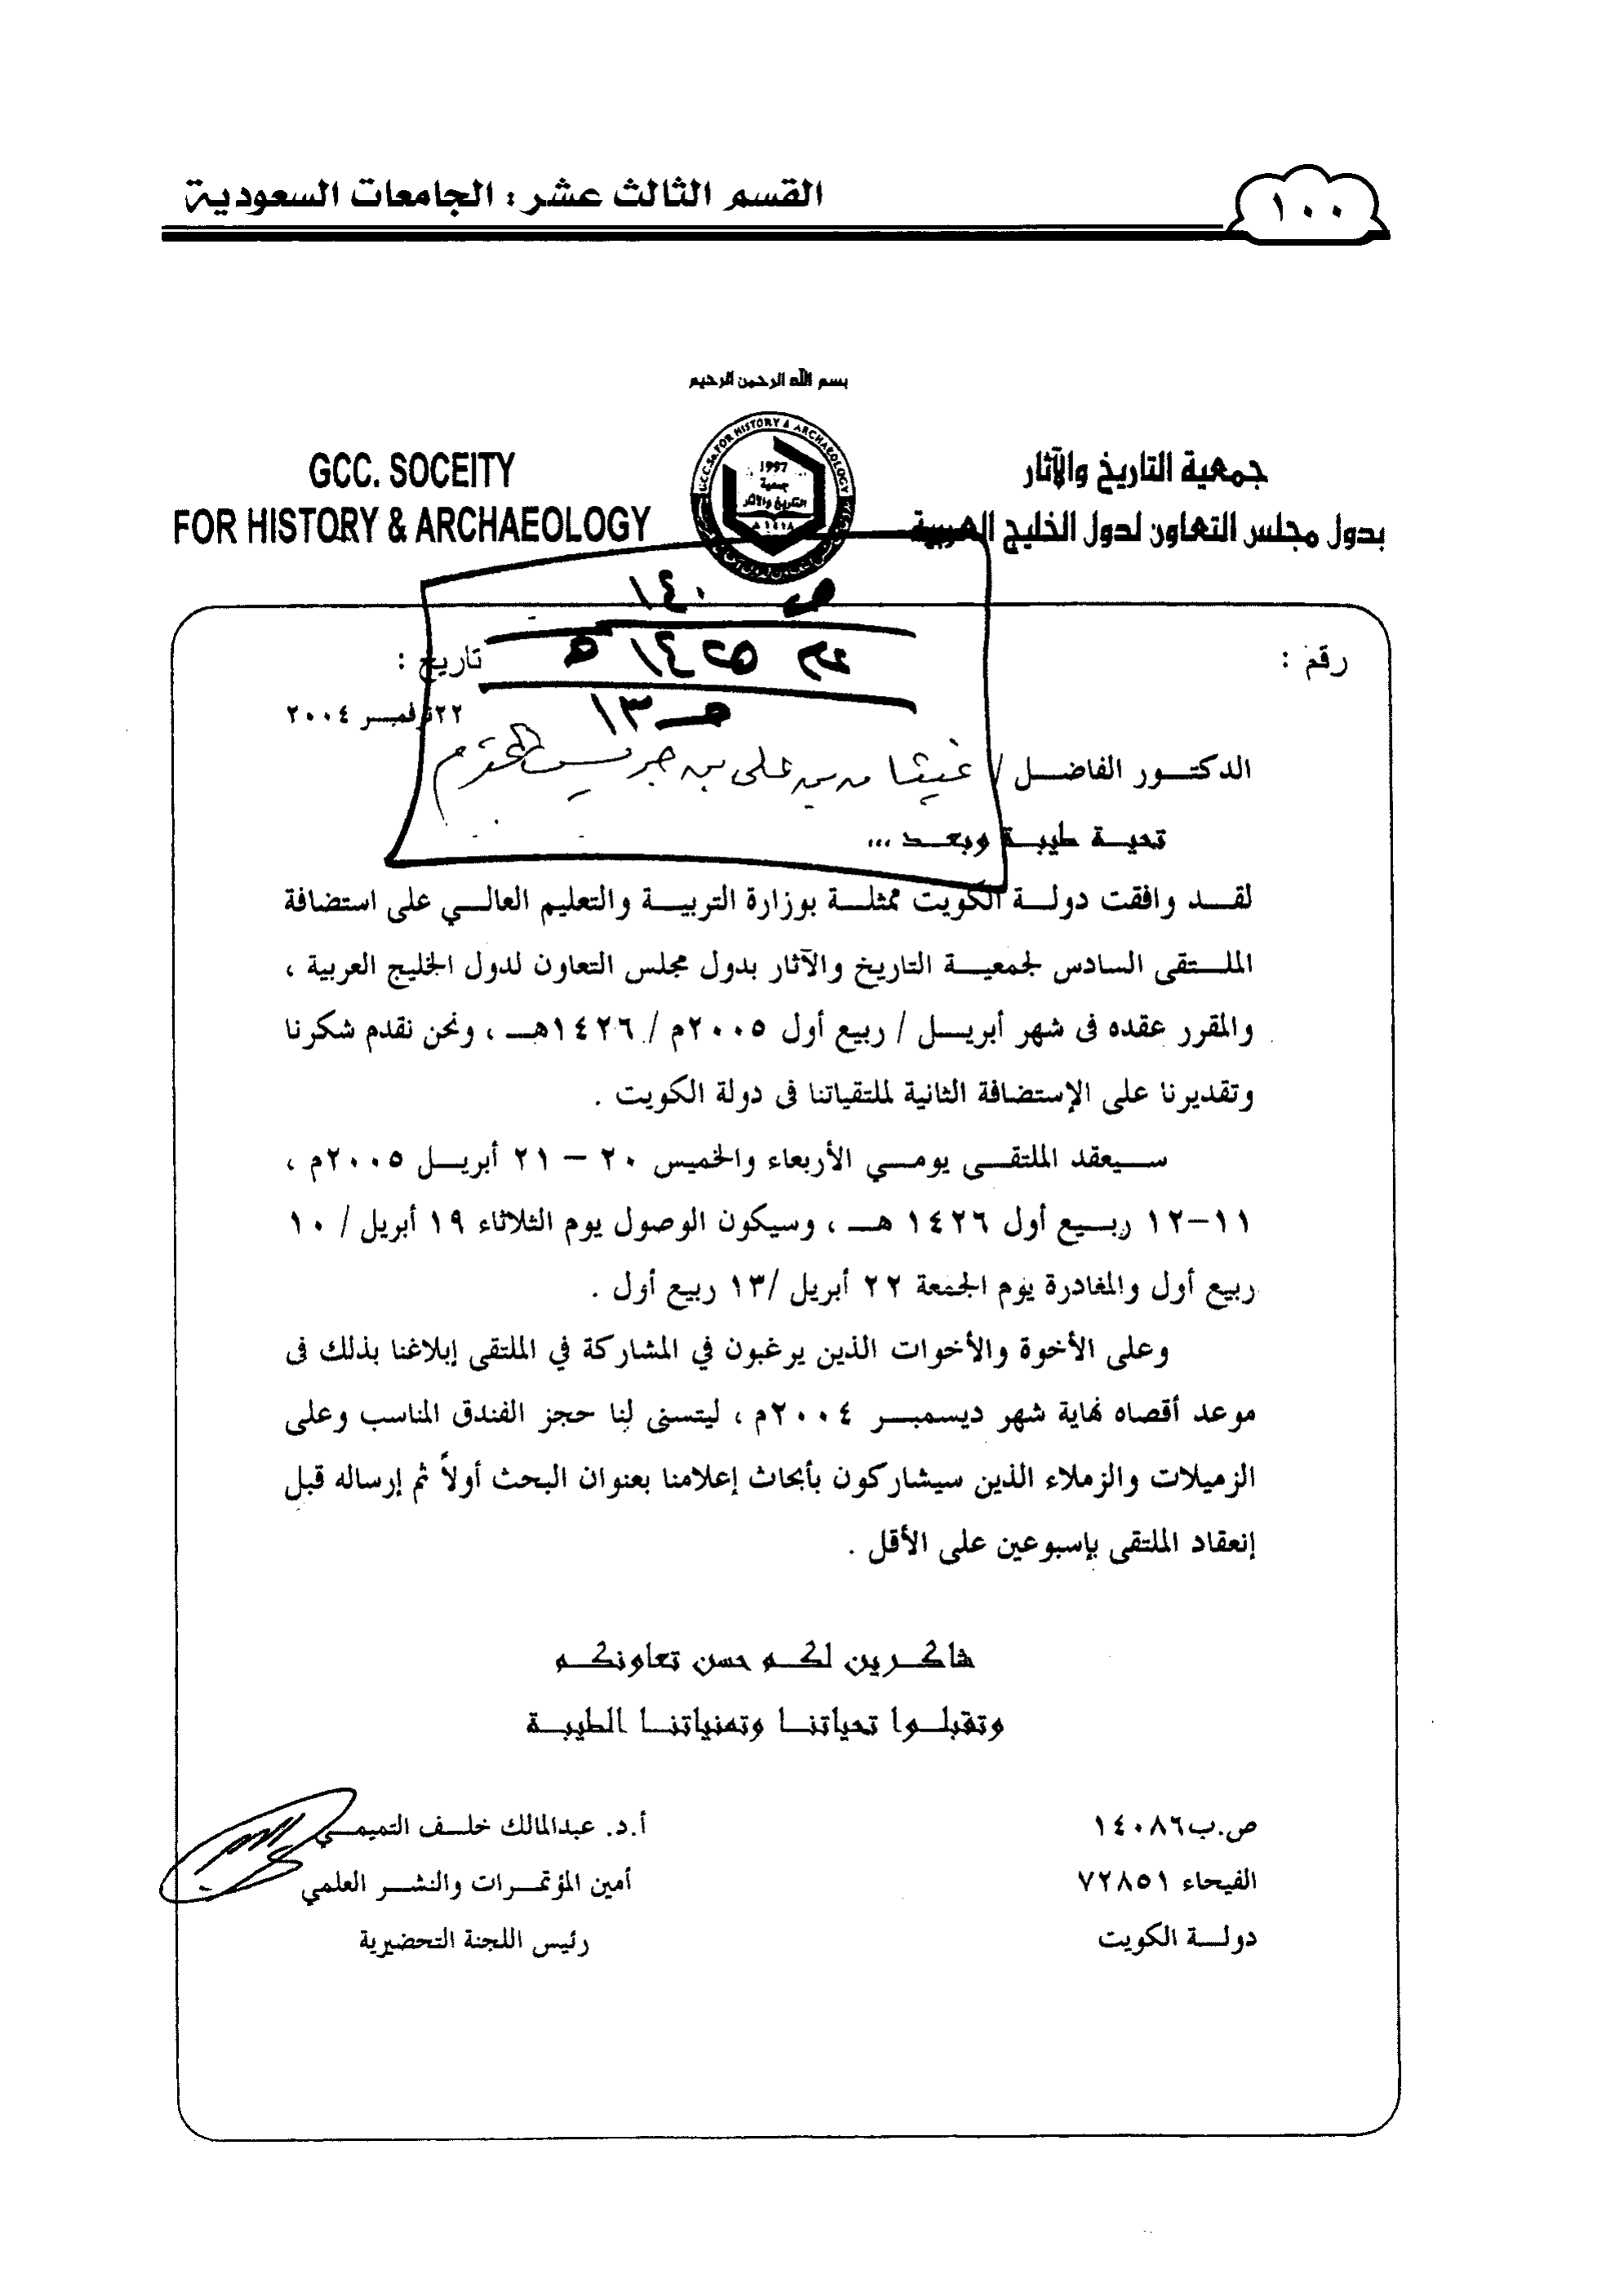 ١٠٠
القسم الثالث عشر : الجامعات السعودية
بسم الله الرحمن الرحيم
جمعية التاريخ والآثار
بدول مجلس التعاون لدول الخليج العربية
GCC. SOCEITY
FOR HISTORY & ARCHAEOLOGY
GCC.So.FOR HISTORY & ARCHAEOLOGY
1997
جمعية
التاريخ والآثار
١٤١٨ هـ
رقم :
تاريخ :
٢٢ نوفمبر ٢٠٠٤
الدكتور الفاضل / غيثان بن علي بن جريس المحترم
تحية طيبة وبعد ...
لقد وافقت دولة الكويت ممثلة بوزارة التربية والتعليم العالي على استضافة
الملتقى السادس لجمعية التاريخ والآثار بدول مجلس التعاون لدول الخليج العربية ،
والمقرر عقده فى شهر أبريل / ربيع أول ٢٠٠٥م / ١٤٢٦هـ ، ونحن نقدم شكرنا
وتقديرنا على الإستضافة الثانية لملتقياتنا فى دولة الكويت .
سيعقد الملتقى يومي الأربعاء والخميس ٢٠ – ٢١ أبريل ٢٠٠٥م ،
١١-١٢ ربيع أول ١٤٢٦ هـ ، وسيكون الوصول يوم الثلاثاء ١٩ أبريل / ١٠
ربيع أول والمغادرة يوم الجمعة ٢٢ أبريل /١٣ ربيع أول .
وعلى الأخوة والأخوات الذين يرغبون في المشاركة في الملتقى إبلاغنا بذلك فى
موعد أقصاه نهاية شهر ديسمبر ٢٠٠٤م ، ليتسنى لنا حجز الفندق المناسب وعلى
الزميلات والزملاء الذين سيشاركون بأبحاث إعلامنا بعنوان البحث أولاً ثم إرساله قبل
إنعقاد الملتقى بإسبوعين على الأقل .
شاكرين لكم حسن تعاونكم
وتقبلوا تحياتنا وتمنياتنا الطيبة
أ.د. عبدالمالك خلف التميمي
أمين المؤتمرات والنشر العلمي
رئيس اللجنة التحضيرية
ص.ب١٤٠٨٦
الفيحاء ٧٢٨٥١
دولة الكويت